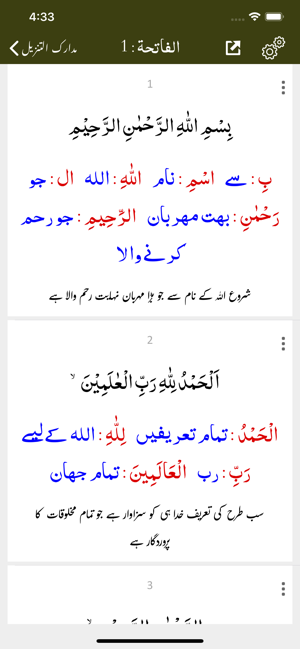 4:33
مدارک التنزیل
الفاتحة : 1
1
بِسْمِ اللّٰهِ الرَّحْمٰنِ الرَّحِیْمِ
بِ : سے اسْمِ : نام اللّٰهِ : الله ال : جو
رَحْمٰنِ : بهت مهربان الرَّحِیمِ : جو رحم
کرنے والا
شروع الله کے نام سے جو بڑا مہربان نہایت رحم والا ہے
2
اَلْحَمْدُ لِلّٰهِ رَبِّ الْعٰلَمِیْنَ ۙ
الْحَمْدُ : تمام تعریفیں لِلّٰهِ : الله کے لیے
رَبِّ : رب الْعَالَمِینَ : تمام جهان
سب طرح کی تعریف خدا ہی کو سزاوار ہے جو تمام مخلوقات کا
پروردگار ہے
3